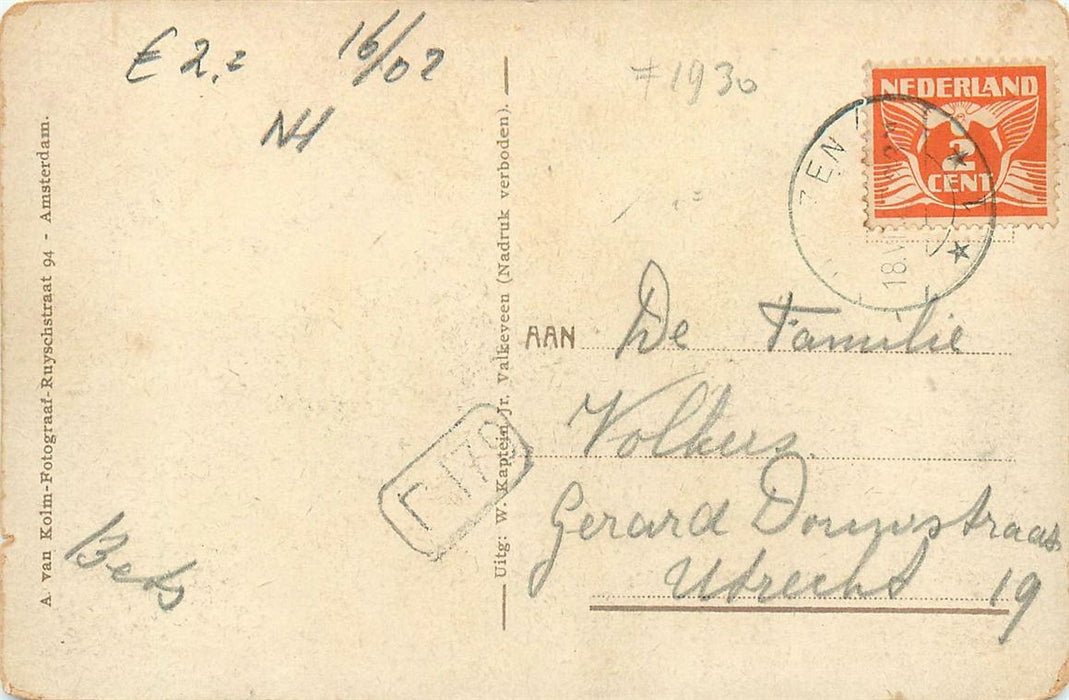 € 2,=
16/02
NH
≠ 1930
NEDERLAND
2
CENT
ZEN
18.V
1
A. van Kolm-Fotograaf-Ruyschstraat 94 - Amsterdam.
Uitg: W. Kaptein Jr. Valkeveen (Nadruk verboden).
AAN De Familie
Volkers
Gerard Douwstraat
Utrecht 19
Bets